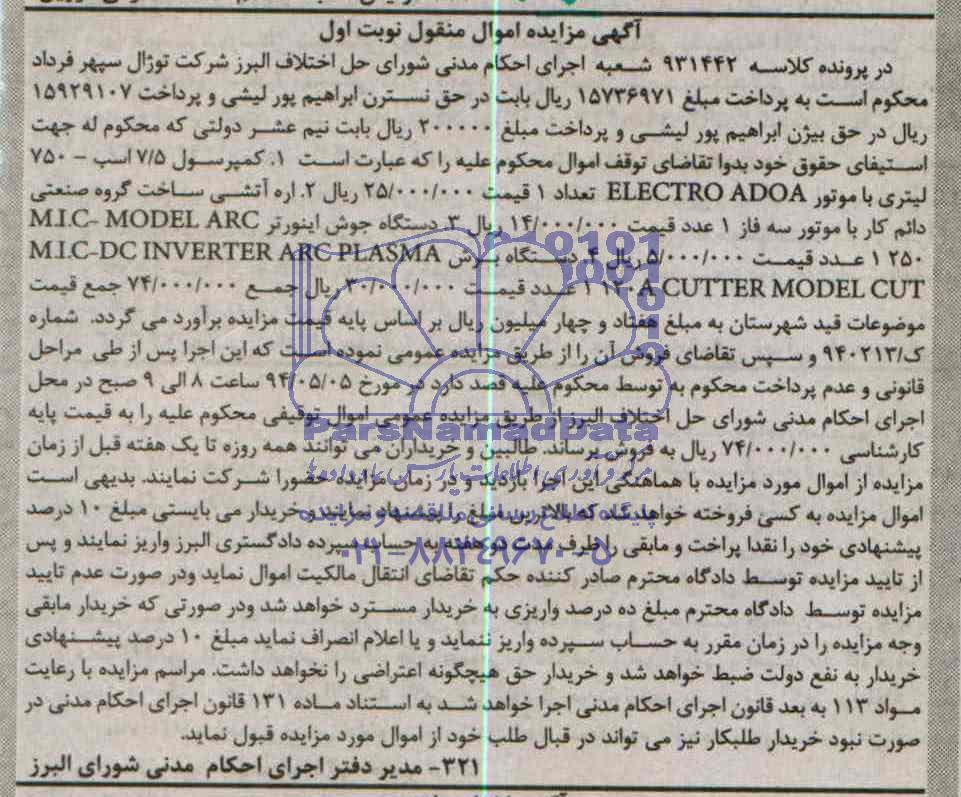 آگهی مزایده اموال منقول نوبت اول
در پرونده کلاسه ۹۳۱۴۴۲ شعبه اجرای احکام مدنی شورای حل اختلاف البرز شرکت توژال سپهر فرداد
محکوم است به پرداخت مبلغ ۱۵۷۳۶۹۷۱ ریال بابت در حق نسترن ابراهیم پور لیشی و پرداخت ۱۵۹۲۹۱۰۷
ریال در حق بیژن ابراهیم پور لیشی و پرداخت مبلغ ۲۰۰۰۰۰ ریال بابت نیم عشر دولتی که محکوم له جهت
استیفای حقوق خود بدوا تقاضای توقف اموال محکوم علیه را که عبارت است ۱. کمپرسول ۷/۵ اسب - ۷۵۰
لیتری با موتور ELECTRO ADOA تعداد ۱ قیمت ۲۵/۰۰۰/۰۰۰ ریال ۲. اره آتشی ساخت گروه صنعتی
دائم کار با موتور سه فاز ۱ عدد قیمت ۱۴/۰۰۰/۰۰۰ ریال ۳. دستگاه جوش اینورتر M.I.C- MODEL ARC
۲۵۰ ۱ عدد قیمت ۵/۰۰۰/۰۰۰ ریال ۴. دستگاه برش M.I.C-DC INVERTER ARC PLASMA
CUTTER MODEL CUT ۱۲۰A ۱ عدد قیمت ۳۰/۰۰۰/۰۰۰ ریال جمع ۷۴/۰۰۰/۰۰۰ جمع قیمت
موضوعات قید شهرستان به مبلغ هفتاد و چهار میلیون ریال بر اساس پایه قیمت مزایده برآورد می گردد. شماره
ک/۹۴۰۲۱۳ و سپس تقاضای فروش آن را از طریق مزایده عمومی نموده است که این اجرا پس از طی مراحل
قانونی و عدم پرداخت محکوم به توسط محکوم علیه قصد دارد در مورخ ۹۴/۰۵/۰۵ ساعت ۸ الی ۹ صبح در محل
اجرای احکام مدنی شورای حل اختلاف البرز از طریق مزایده عمومی اموال توقیفی محکوم علیه را به قیمت پایه
کارشناسی ۷۴/۰۰۰/۰۰۰ ریال به فروش برساند. طالبین و خریداران می توانند همه روزه تا یک هفته قبل از زمان
مزایده از اموال مورد مزایده با هماهنگی این اجرا بازدید و در زمان مزایده حضورا شرکت نمایند. بدیهی است
اموال مزایده به کسی فروخته خواهد شد که بالاترین مبلغ را پیشنهاد نمایند و خریدار می بایستی مبلغ ۱۰ درصد
پیشنهادی خود را نقدا پراخت و مابقی را ظرف مدت دو هفته به حساب سپرده دادگستری البرز واریز نمایند و پس
از تایید مزایده توسط دادگاه محترم صادر کننده حکم تقاضای انتقال مالکیت اموال نماید ودر صورت عدم تایید
مزایده توسط دادگاه محترم مبلغ ده درصد واریزی به خریدار مسترد خواهد شد ودر صورتی که خریدار مابقی
وجه مزایده را در زمان مقرر به حساب سپرده واریز ننماید و یا اعلام انصراف نماید مبلغ ۱۰ درصد پیشنهادی
خریدار به نفع دولت ضبط خواهد شد و خریدار حق هیچگونه اعتراضی را نخواهد داشت. مراسم مزایده با رعایت
مواد ۱۱۳ به بعد قانون اجرای احکام مدنی اجرا خواهد شد به استناد ماده ۱۳۱ قانون اجرای احکام مدنی در
صورت نبود خریدار طلبکار نیز می تواند در قبال طلب خود از اموال مورد مزایده قبول نماید.
۳۲۱- مدیر دفتر اجرای احکام مدنی شورای البرز
ParsNamadData